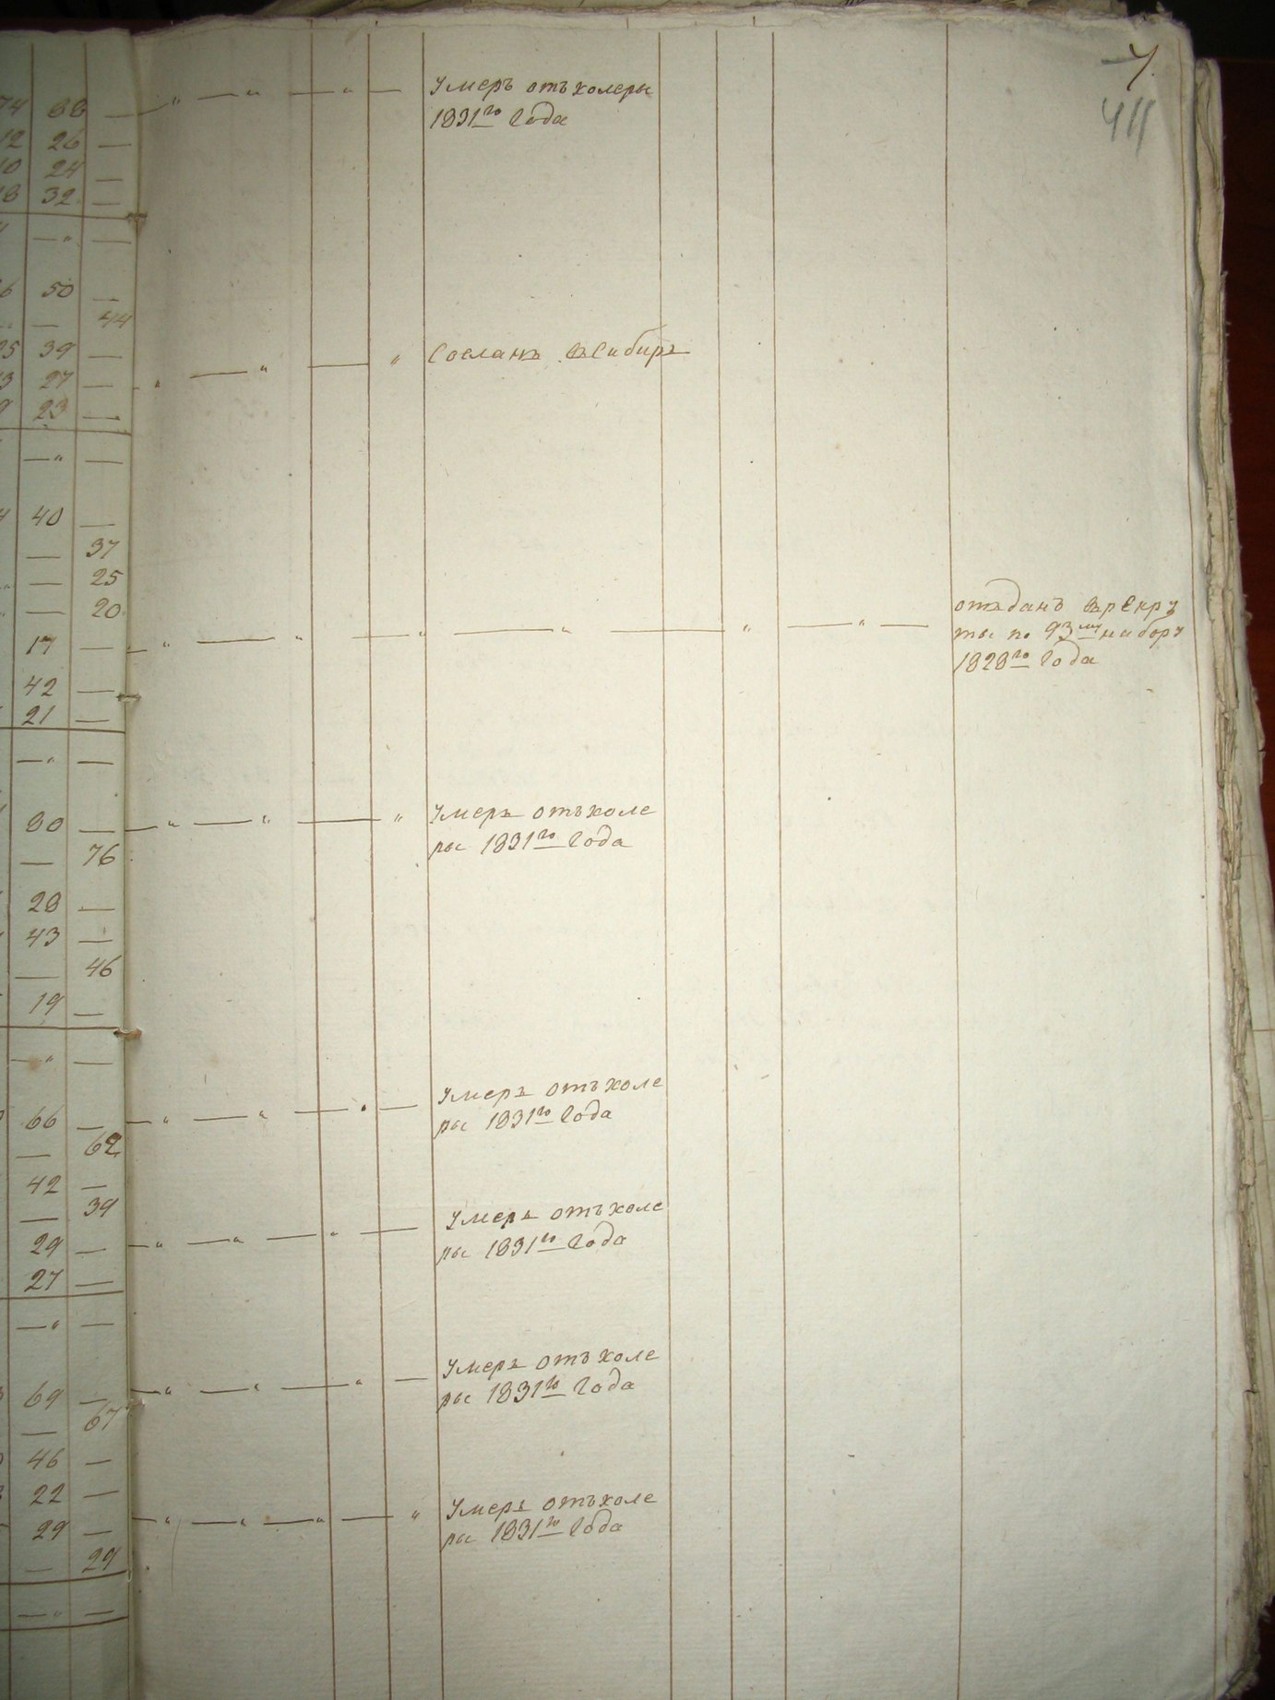 7.
411
74 88 —
12 26 —
10 24 —
18 32 —
— " —
50 —
— 44
39 —
27 —
23 —
— " —
40 —
— 37
— 25
— 20
17 —
42 —
21 —
— " —
80 —
— 76
28 —
43 —
— 46
19 —
— " —
66 —
— 62
42 —
— 39
29 —
27 —
— " —
69 —
— 67
46 —
22 —
29 —
— 29
— " —
Умеръ отъ холеры
1831го Года
Сосланъ въ Сибирь
отъданъ въ рекру
ты по 93му набору
1828го Года
Умеръ отъ холе
ры 1831го Года
Умеръ отъ холе
ры 1831го Года
Умеръ отъ холе
ры 1831го Года
Умеръ отъ холе
ры 1831го Года
Умеръ отъ холе
ры 1831го Года